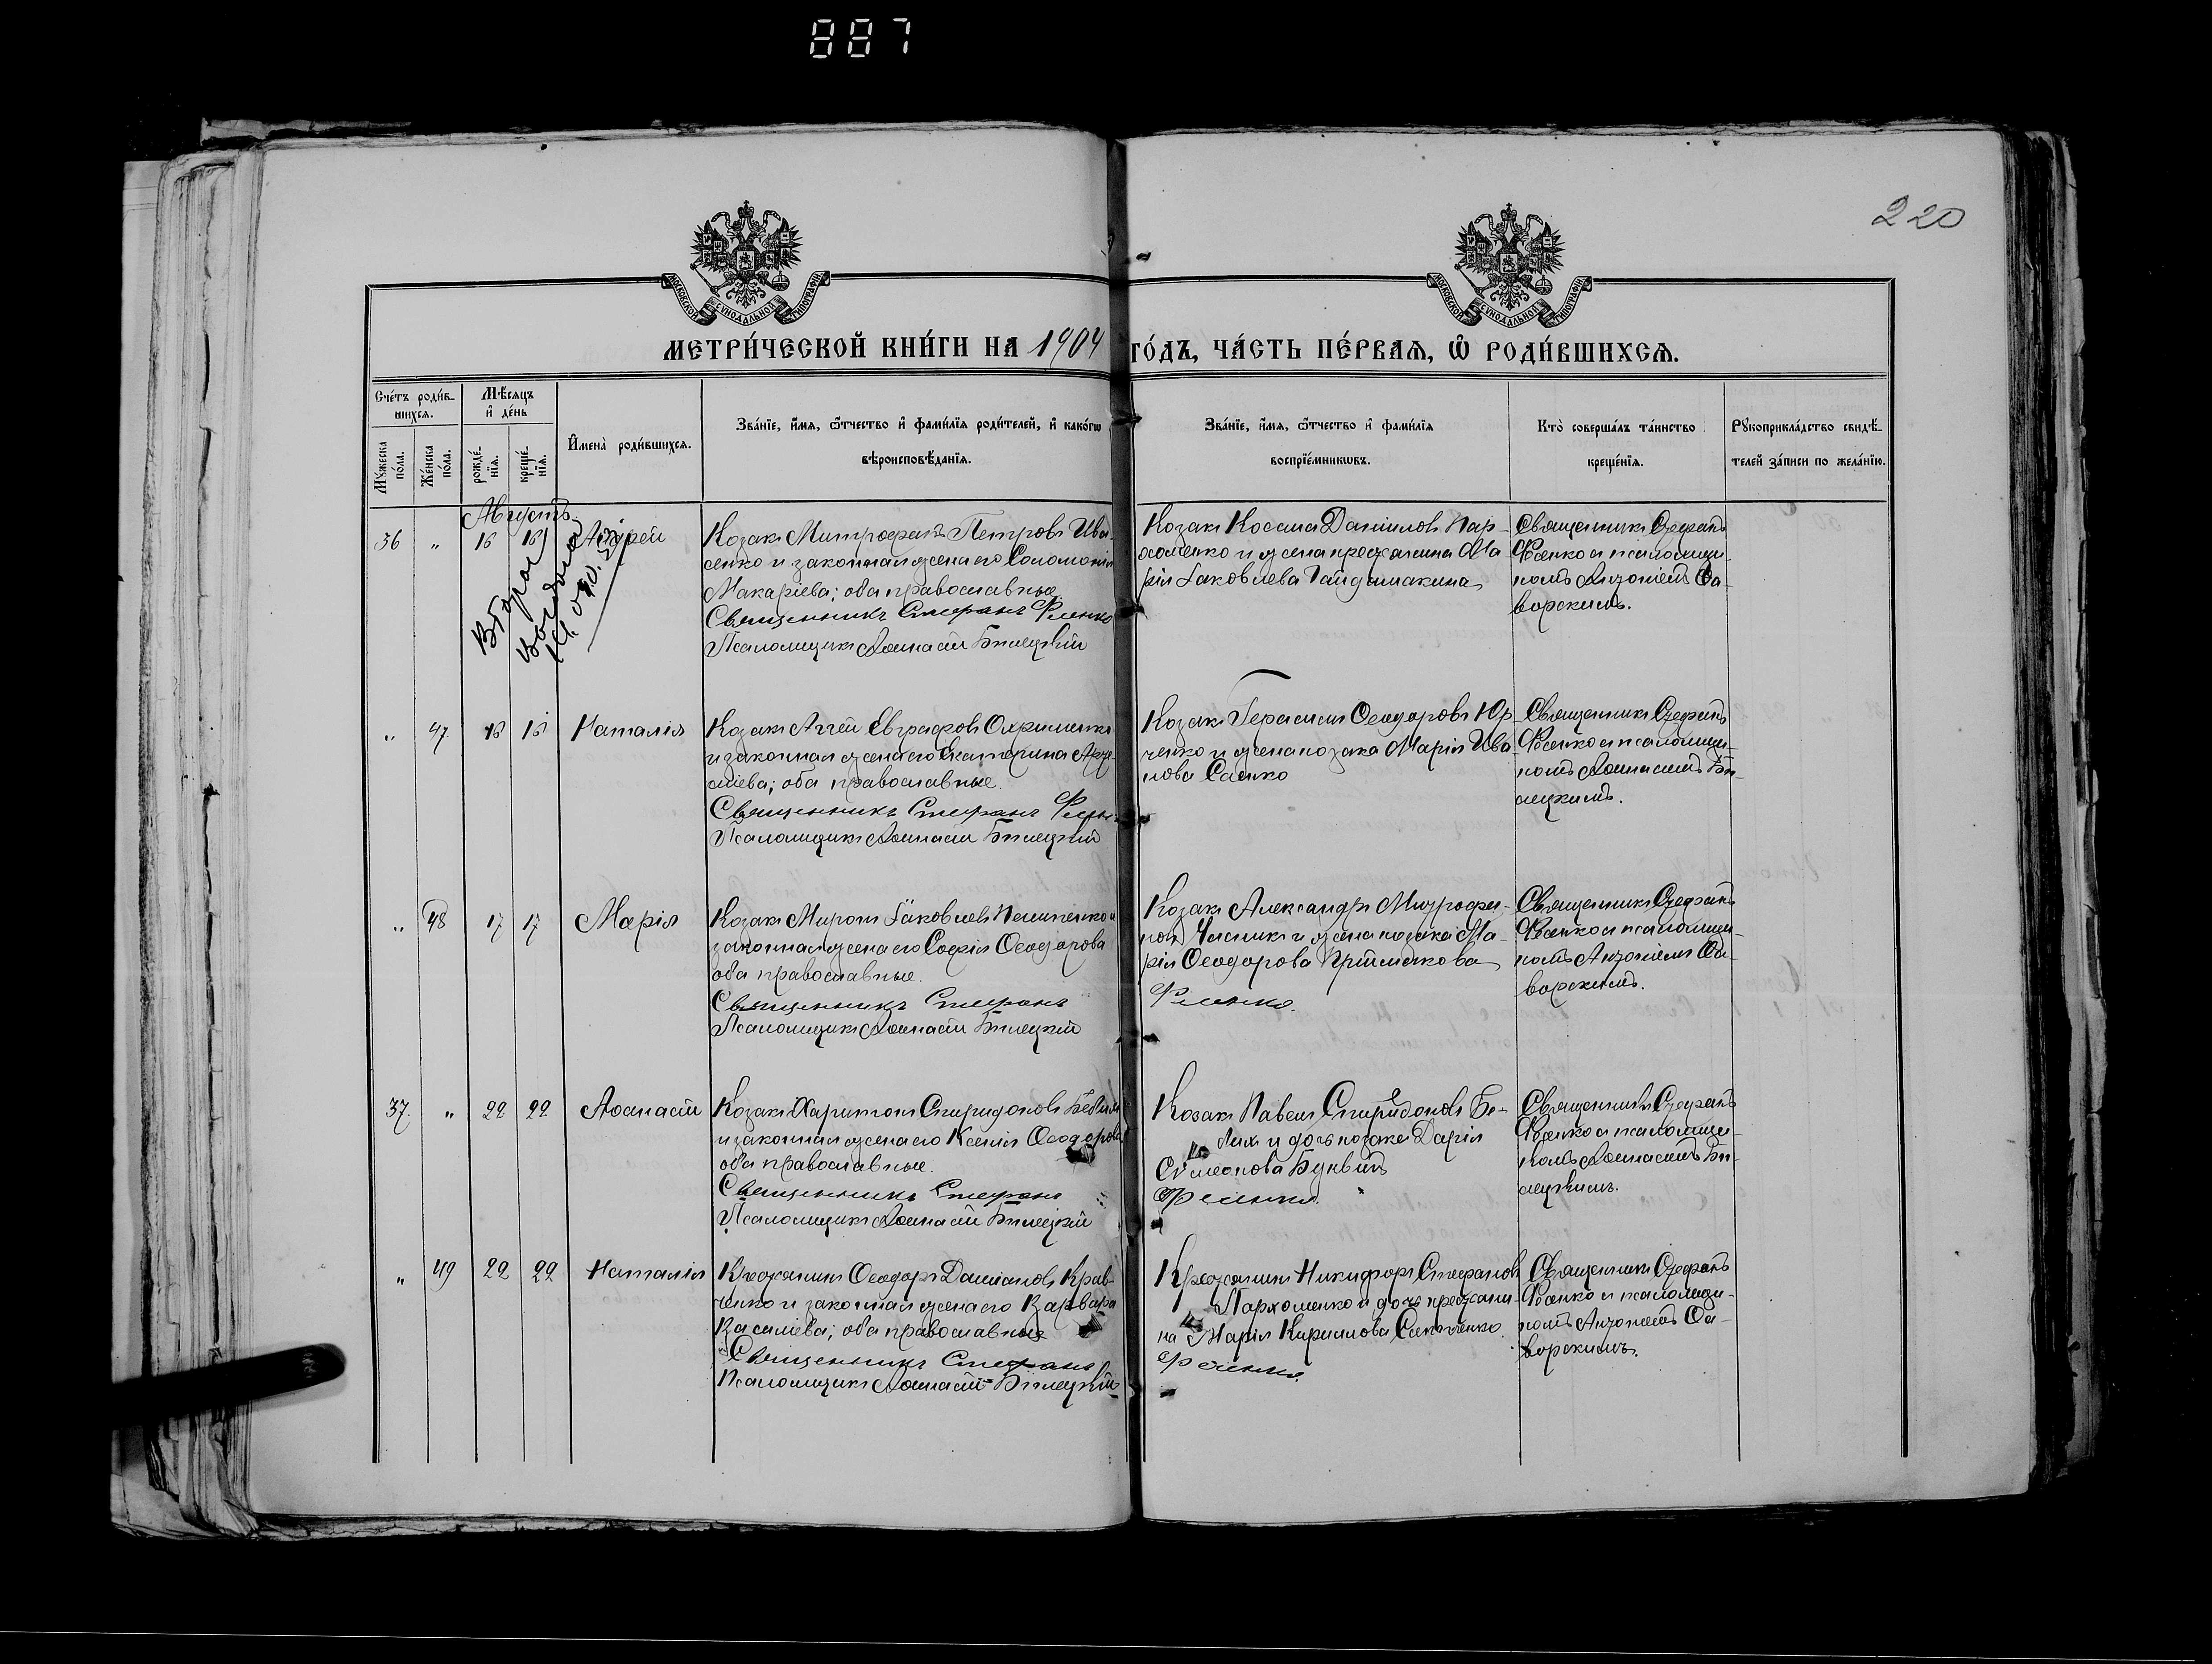 887
220
МОСКОВСКОЙ СУНОДАЛЬНОЙ ТИПОГРАФІИ
МОСКОВСКОЙ СУНОДАЛЬНОЙ ТИПОГРАФІИ
МЕТРИ́ЧЕСКОЙ КНИ́ГИ НА 1904 ГО́ДЪ, ЧА́СТЬ ПЕ́РВАЯ, Ѽ РОДИ́ВШИХСЯ.
Сче́тъ роди́в-
шихся.
Мѣ́сяцъ
и҆ де́нь
Мꙋ́жеска по́ла.
Же́нска по́ла.
рожде́нїя.
креще́нїя.
И҆мена̀ роди́вшихся.
Зва́нїе, и҆́мя, ѻ҆́тчество и҆ фами́лїя роди́телей, и҆ како́гѡ
вѣроисповѣ́данїя.
Зва́нїе, и҆́мя, ѻ҆́тчество и҆ фами́лїя
воспрїе́мникѡвъ.
Кто̀ соверша́лъ та́инство
креще́нїя.
Рꙋкоприкла́дство свидѣ́-
телей за́писи по жела́нїю.
Августъ.
36 " 16 16 Андрей
Козакъ Митрофанъ Петровъ Ива-
сенко и законная жена его Соломонія
Макаріева; оба православные.
Священникъ Стефанъ
Псаломщикъ Аѳанасій Билецкій
Козакъ Косма Даніиловъ Пар-
хоменко и жена крестьянина Ма-
рія Іаковлева Гайдамакина
Священникъ Стефанъ
и псаломщи-
комъ Антоніемъ
ворскимъ.
Второй
выдана
" 47 16 16 Наталія
Козакъ Аггей Евграфовъ Охрименко
и законная жена его Екатерина
оба православные.
Священникъ Стефанъ
Псаломщикъ Аѳанасій Билецкій
Козакъ Герасимъ Ѳеодоровъ Юр-
ченко и жена козака Марія Ива-
нова Саенко
Священникъ Стефанъ
и псаломщи-
комъ Аѳанасіемъ Би-
лецкимъ.
" 48 17 17 Марія
Козакъ Миронъ Іаковлевъ и
законная жена его Софія Ѳеодорова
оба православные.
Священникъ Стефанъ
Псаломщикъ Аѳанасій Билецкій
Козакъ Александръ Митрофа-
новъ и жена козака Ма-
рія Ѳеодорова Приймакова
Священникъ Стефанъ
и псаломщи-
комъ Антоніемъ
ворскимъ.
37. " 22 22 Аѳанасій
Козакъ Харитонъ Спиридоновъ
и законная жена его Ксенія Ѳеодорова
оба православные.
Священникъ Стефанъ
Псаломщикъ Аѳанасій Билецкій
Козакъ Павелъ Спиридоновъ Бе-
и дочь козака Дарія
Симеонова
Священникъ Стефанъ
и псаломщи-
комъ Аѳанасіемъ Би-
лецкимъ.
" 49 22 22 Наталія
Крестьянинъ Ѳеодоръ Даміановъ Крав-
ченко и законная жена его Варвара
Василіева; оба православные
Священникъ Стефанъ
Псаломщикъ Аѳанасій Билецкій
Крестьянинъ Никифоръ Стефановъ
Пархоменко и дочь крестьяни-
на Марія Кириллова
Священникъ Стефанъ
и псаломщи-
комъ Антоніемъ
ворскимъ.